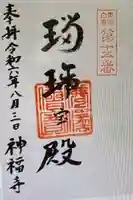 瑠璃宝殿
奉拝 令和六年八月三日 神福寺